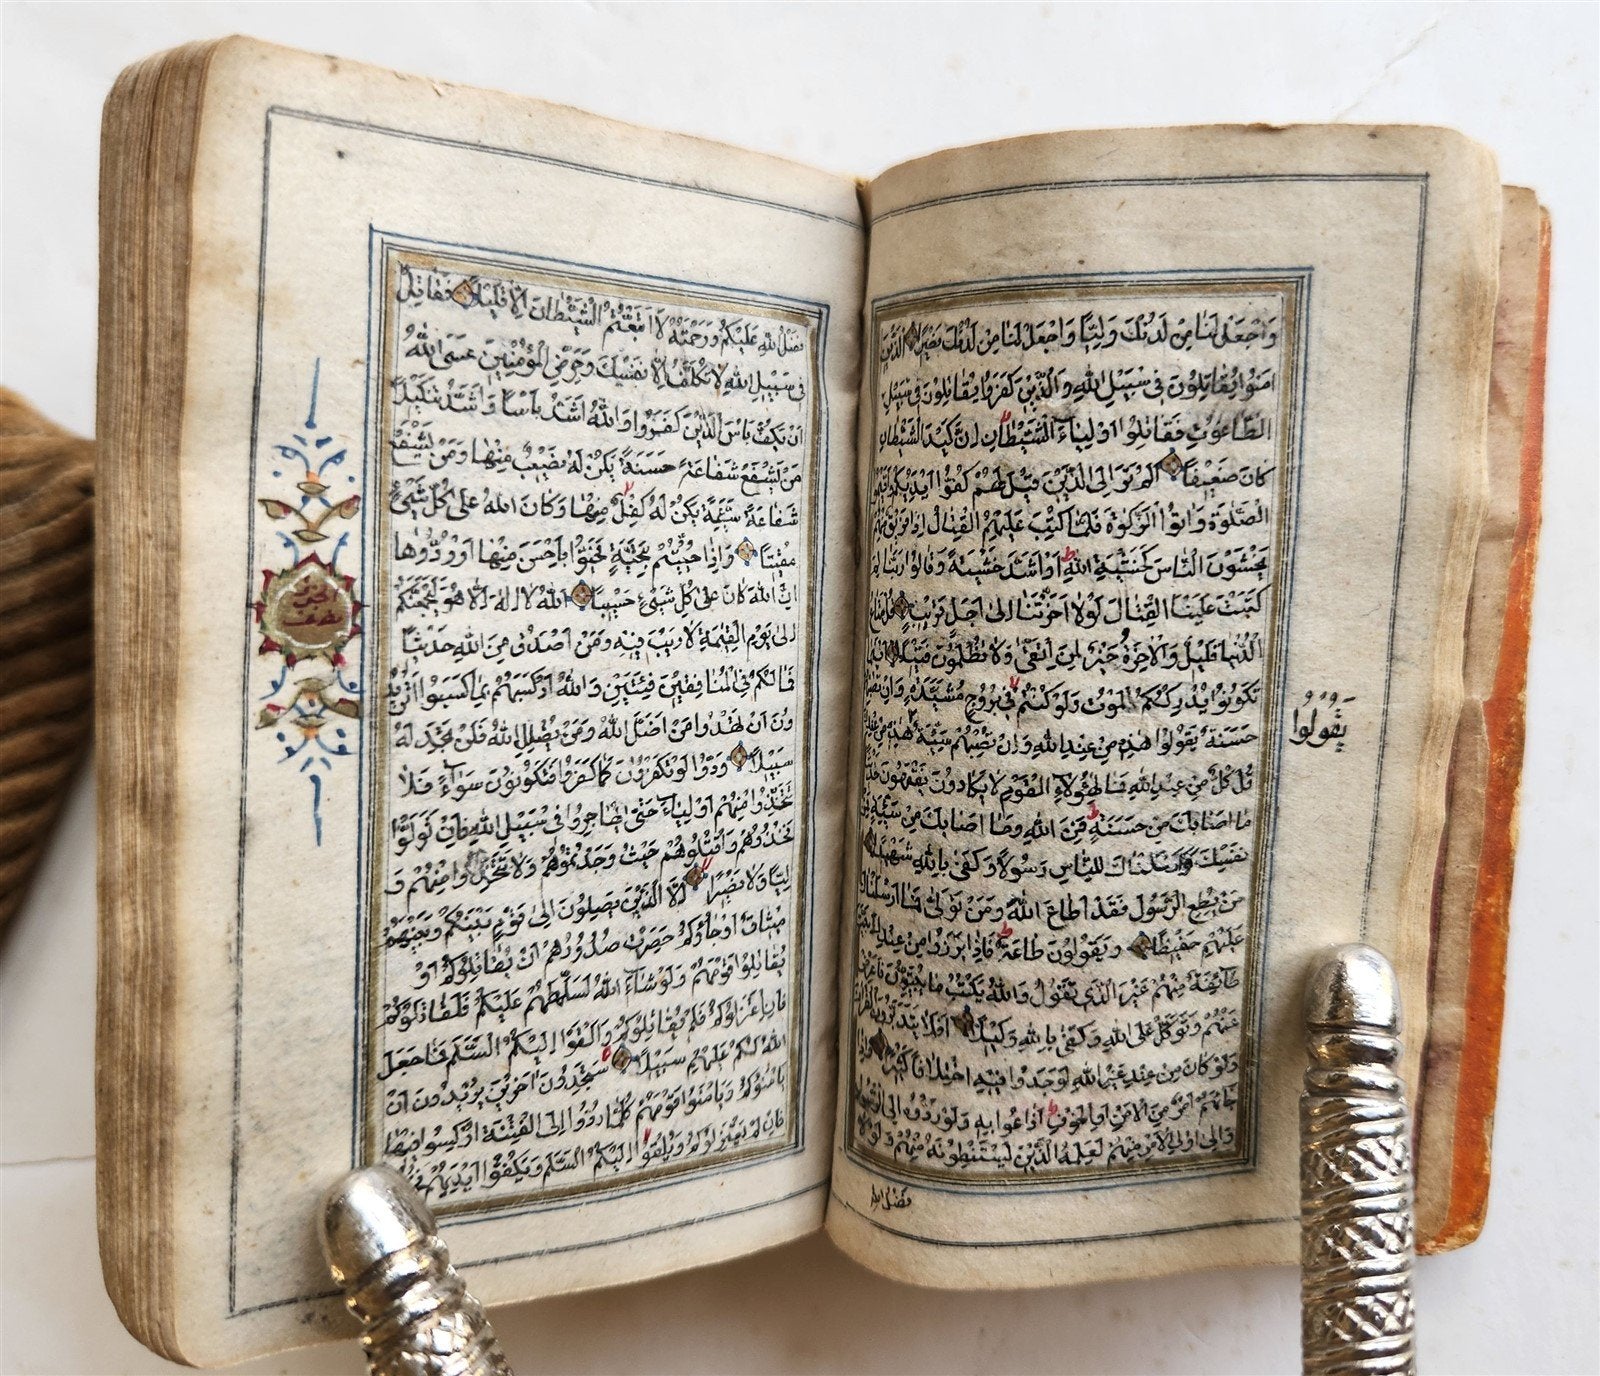 وَاجْعَلْ لَنَا مِنْ لَدُنْكَ وَلِيًّا وَاجْعَلْ لَنَا مِنْ لَدُنْكَ نَصِيرًا الَّذِينَ
امَنُوا يُقَاتِلُونَ فِى سَبِيلِ اللهِ وَالَّذِينَ كَفَرُوا يُقَاتِلُونَ فِى سَبِيلِ
الطَّاغُوتِ فَقَاتِلُوا اَوْلِيَاءَ الشَّيْطَانِ اِنَّ كَيْدَ الشَّيْطَانِ
كَانَ ضَعِيفًا اَلَمْ تَرَ اِلَى الَّذِينَ قِيلَ لَهُمْ كُفُّوا اَيْدِيَكُمْ وَاَقِيمُوا
الصَّلٰوةَ وَاتُوا الزَّكٰوةَ فَلَمَّا كُتِبَ عَلَيْهِمُ الْقِتَالُ اِذَا فَرِيقٌ مِنْهُمْ
يَخْشَوْنَ النَّاسَ كَخَشْيَةِ اللهِ اَوْ اَشَدَّ خَشْيَةً وَقَالُوا رَبَّنَا لِمَ
كَتَبْتَ عَلَيْنَا الْقِتَالَ لَوْلَا اَخَّرْتَنَا اِلٰى اَجَلٍ قَرِيبٍ قُلْ مَتَاعُ
الدُّنْيَا قَلِيلٌ وَالْاٰخِرَةُ خَيْرٌ لِمَنِ اتَّقٰى وَلَا تُظْلَمُونَ فَتِيلًا اَيْنَمَا
تَكُونُوا يُدْرِكْكُمُ الْمَوْتُ وَلَوْ كُنْتُمْ فِى بُرُوجٍ مُشَيَّدَةٍ وَاِنْ تُصِبْهُمْ
حَسَنَةٌ يَقُولُوا هٰذِهِ مِنْ عِنْدِ اللهِ وَاِنْ تُصِبْهُمْ سَيِّئَةٌ هٰذِهِ مِنْ عِنْدِكَ
يَقُولُوا
قُلْ كُلٌّ مِنْ عِنْدِ اللهِ فَمَا لِهٰؤُلَاءِ الْقَوْمِ لَا يَكَادُونَ يَفْقَهُونَ حَدِيثًا
مَا اَصَابَكَ مِنْ حَسَنَةٍ فَمِنَ اللهِ وَمَا اَصَابَكَ مِنْ سَيِّئَةٍ فَمِنْ
نَفْسِكَ وَاَرْسَلْنَاكَ لِلنَّاسِ رَسُولًا وَكَفٰى بِاللهِ شَهِيدًا
مَنْ يُطِعِ الرَّسُولَ فَقَدْ اَطَاعَ اللهَ وَمَنْ تَوَلّٰى فَمَا اَرْسَلْنَاكَ
عَلَيْهِمْ حَفِيظًا وَيَقُولُونَ طَاعَةٌ فَاِذَا بَرَزُوا مِنْ عِنْدِكَ بَيَّتَ
طَائِفَةٌ مِنْهُمْ غَيْرَ الَّذِى تَقُولُ وَاللهُ يَكْتُبُ مَا يُبَيِّتُونَ فَاَعْرِضْ
عَنْهُمْ وَتَوَكَّلْ عَلَى اللهِ وَكَفٰى بِاللهِ وَكِيلًا اَفَلَا يَتَدَبَّرُونَ الْقُرْاٰنَ
وَلَوْ كَانَ مِنْ عِنْدِ غَيْرِ اللهِ لَوَجَدُوا فِيهِ اخْتِلَافًا كَثِيرًا وَاِذَا
جَاءَهُمْ اَمْرٌ مِنَ الْاَمْنِ اَوِ الْخَوْفِ اَذَاعُوا بِهِ وَلَوْ رَدُّوهُ اِلَى الرَّسُولِ
وَاِلٰى اُولِى الْاَمْرِ مِنْهُمْ لَعَلِمَهُ الَّذِينَ يَسْتَنْبِطُونَهُ مِنْهُمْ وَلَوْلَا
فَضْلُ الله
فَضْلُ اللهِ عَلَيْكُمْ وَرَحْمَتُهُ لَاتَّبَعْتُمُ الشَّيْطَانَ اِلَّا قَلِيلًا فَقَاتِلْ
فِى سَبِيلِ اللهِ لَا تُكَلَّفُ اِلَّا نَفْسَكَ وَحَرِّضِ الْمُؤْمِنِينَ عَسَى اللهُ
اَنْ يَكُفَّ بَأْسَ الَّذِينَ كَفَرُوا وَاللهُ اَشَدُّ بَأْسًا وَاَشَدُّ تَنْكِيلًا
مَنْ يَشْفَعْ شَفَاعَةً حَسَنَةً يَكُنْ لَهُ نَصِيبٌ مِنْهَا وَمَنْ يَشْفَعْ
شَفَاعَةً سَيِّئَةً يَكُنْ لَهُ كِفْلٌ مِنْهَا وَكَانَ اللهُ عَلٰى كُلِّ شَيْءٍ
مُقِيتًا وَاِذَا حُيِّيتُمْ بِتَحِيَّةٍ فَحَيُّوا بِاَحْسَنَ مِنْهَا اَوْ رُدُّوهَا
اِنَّ اللهَ كَانَ عَلٰى كُلِّ شَيْءٍ حَسِيبًا اَللهُ لَا اِلٰهَ اِلَّا هُوَ لَيَجْمَعَنَّكُمْ
اِلٰى يَوْمِ الْقِيٰمَةِ لَا رَيْبَ فِيهِ وَمَنْ اَصْدَقُ مِنَ اللهِ حَدِيثًا
فَمَا لَكُمْ فِى الْمُنَافِقِينَ فِئَتَيْنِ وَاللهُ اَرْكَسَهُمْ بِمَا كَسَبُوا اَتُرِيدُ
ونَ اَنْ تَهْدُوا مَنْ اَضَلَّ اللهُ وَمَنْ يُضْلِلِ اللهُ فَلَنْ تَجِدَ لَهُ
سَبِيلًا وَدُّوا لَوْ تَكْفُرُونَ كَمَا كَفَرُوا فَتَكُونُونَ سَوَاءً فَلَا
تَتَّخِذُوا مِنْهُمْ اَوْلِيَاءَ حَتّٰى يُهَاجِرُوا فِى سَبِيلِ اللهِ فَاِنْ تَوَلَّوْا
فَخُذُوهُمْ وَاقْتُلُوهُمْ حَيْثُ وَجَدْتُمُوهُمْ وَلَا تَتَّخِذُوا مِنْهُمْ وَ
لِيًّا وَلَا نَصِيرًا اِلَّا الَّذِينَ يَصِلُونَ اِلٰى قَوْمٍ بَيْنَكُمْ وَبَيْنَهُمْ
مِيثَاقٌ اَوْ جَاؤُكُمْ حَصِرَتْ صُدُورُهُمْ اَنْ يُقَاتِلُوكُمْ اَوْ
يُقَاتِلُوا قَوْمَهُمْ وَلَوْ شَاءَ اللهُ لَسَلَّطَهُمْ عَلَيْكُمْ فَلَقَاتَلُوكُمْ
فَاِنِ اعْتَزَلُوكُمْ فَلَمْ يُقَاتِلُوكُمْ وَاَلْقَوْا اِلَيْكُمُ السَّلَمَ فَمَا جَعَلَ
اللهُ لَكُمْ عَلَيْهِمْ سَبِيلًا سَتَجِدُونَ اٰخَرِينَ يُرِيدُونَ اَنْ
يَأْمَنُوكُمْ وَيَأْمَنُوا قَوْمَهُمْ كُلَّمَا رُدُّوا اِلَى الْفِتْنَةِ اُرْكِسُوا فِيهَا
فَاِنْ لَمْ يَعْتَزِلُوكُمْ وَيُلْقُوا اِلَيْكُمُ السَّلَمَ وَيَكُفُّوا اَيْدِيَهُمْ
الحزب
نصف